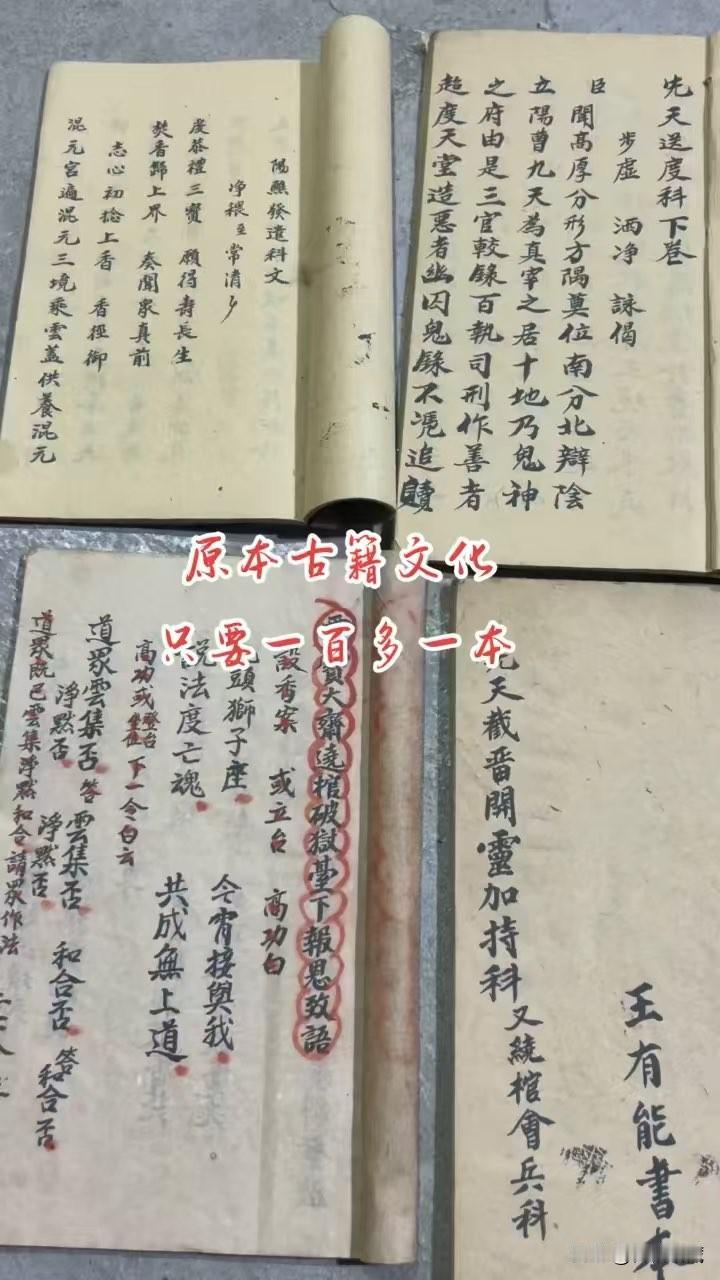 陽熙發遣科文
淨穢至常消
虔恭禮三寳 願得壽長生
焚香歸上界 奏聞衆真前
志心初捻上香 香徑御
混元宮遍混元三境乘雲蓋供養混元
先天送度科下卷
步虛 洒净 詠偈
臣聞高厚分形方隅奠位南分北辯陰
立陽曹九天為真宰之居十地乃鬼神
之府由是三官較錄百執司刑作善者
超度天堂造惡者幽囚鬼錄不憑追贖
原本古籍文化
只要一百多一本
大齋遶棺破獄臺下報恩致語
設香案 或立台 高功白
頭獅子座 今宵接與我
說法度亡魂 共成無上道
高功或登台坐位下一令白云
道眾雲集否 答 雲集否 和合否 答 和合否
淨默否 淨默否
道眾既已雲集淨默和合請眾作法
先天截晉開靈加持科 又繞棺會兵科
王有能書本